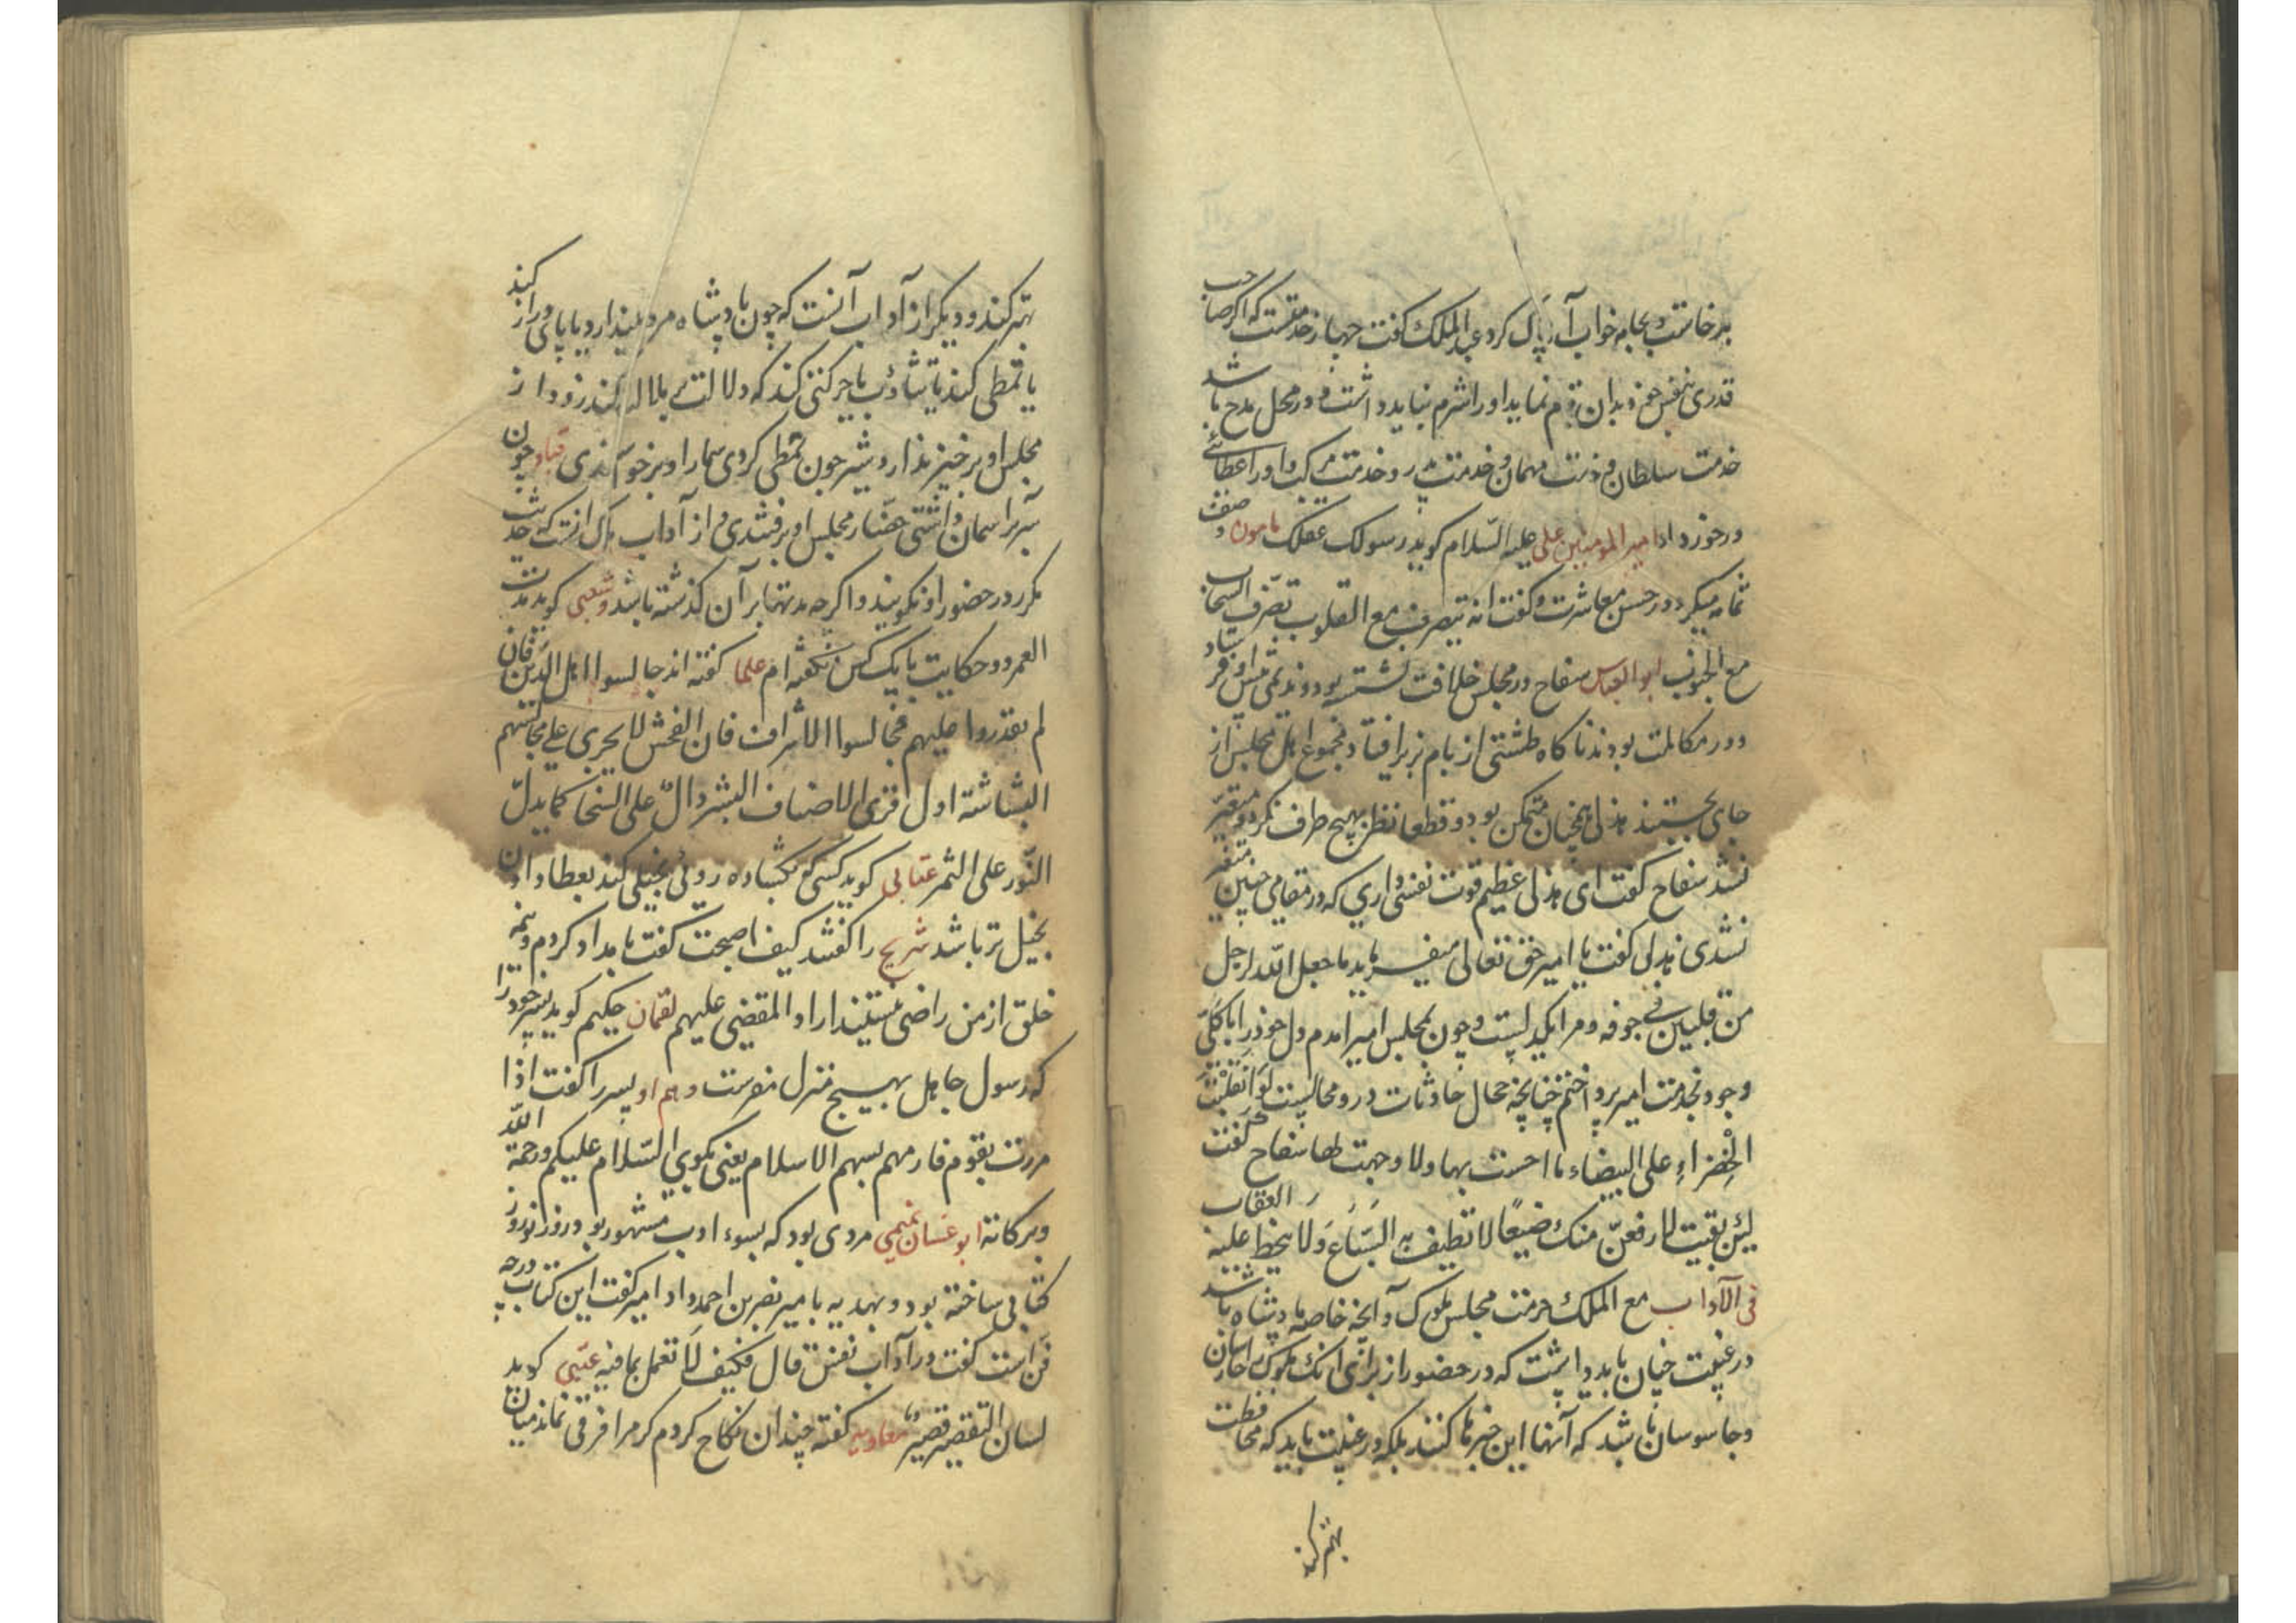 برخاست و بجامه خواب آن پاک کرد عبد الملک کفت جهار خدمتست که اکر صاحب
قدری بنفس خود بدان قیام نماید او را شرم نباید داشت و در محل مدح باشد
خدمت سلطان و خدمت مهمان و خدمت پدر و خدمت مرکب و او را عطائی
درخور داد امیر المومنین علی علیه السّلام کوید رسولک عقلک مامون وصف
ثمامه میکرد در حسن معاشرت و کفت انه یتصرف مع القلوب تصرّف السحاب
مع الجنوب ابو العباس سفاح در مجلس خلافت نشسته بود و هذلی پیش او ایستاد
و در مکالمت بودند ناکاه طشتی از بام بزیر افتاد و مجموع اهل مجلس از
جای بجستند هذلی همچنان متمکن بود و قطعا نظر بهیچ طرف نکرد و متغیّر
نشد سفاح کفت ای هذلی عظیم قوت نفسی داری که در مقامی چنین متغیر
نشدی هذلی کفت یا امیر حق تعالی میفرماید ما جعل اللّه لرجل
من قلبین فی جوفه و مرا یکدلیست و چون بمجلس امیر امدم دل خود را با کلّی
وجود بخدمت امیر پرداختم چنانچه مجال حادثات درو محالیست لَو انقلبَت
الخضراء علی البیضاء ما احسست بها ولا وجمت لها سفاح کفت
لئن بقیت لارفعنّ منک وضیعًا لا تطیف به السّباع وَلا ینحط علیه العقاب
فی الآداب مع الملک حرمت مجلس ملوک و آنچه خاصه پادشاه باشد
در غیبت چنان باید داشت که در حضور از برای انک ملوک را جاسوسان
و جاسوسان باشد که آنها این خبرها کنند بلکه در غیبت باید که محافظت
بهتر کند
بهتر کند و دیکر از آداب آنست که چون پادشاه مروحه بیندازد یا پای دراز کند
یا تمطی کند یا تثاؤب یا حرکتی کند که دلالت بر ملال کند زود از
مجلس او برخیزند اردشیر چون تمطی کردی سمار او برخواستندی قباد چون
سر بر اسمان داشتی حضار مجلس او برفتندی و از آداب یکی انست که حدیث
مکرر در حضور او نکویند و اکرچه مدتها بر آن کذشته باشد و شعبی کوید مدت
العمر دو حکایت با یک کس نکفته ام علما کفته اند جالسوا اهل الدّین فان
لم تقدروا علیهم فجالسوا الاشراف فان الفحش لا یجری علی مجالستهم
البشاشة اول قری الاضیاف البشر دالّ علی السخا کما یدلّ
النّور علی الثمر عتابی کوید کسی که بکشاده روئی بخیلی کند بعطا دادن
بخیل تر باشد شریح را کفتند کیف اصبحت کفت بامداد کردم و نیمه
خلق از من راضی نیستند اراد المقضی علیهم لقمان حکیم کوید پسر خود را
که رسول جاهل بهیچ منزل مفرست و هم او پسر را کفت اذا
مررت بقوم فارمهم بسهم الاسلام یعنی بکوی السّلام علیکم و رحمة اللّه
و برکاته ابو غسان تمیمی مردی بود که بسوء ادب مشهور بود روز نوروز
کتابی ساخته بود و بهدیه بامیر نصر بن احمد داد امیر کفت این کتاب در چه
فن است کفت در آداب نفس قال فکیف لا تعمل بما فیه عتبی کوید
لسان التقصیر قصیر معاویه کفته چندان نکاح کردم کی مرا فرقی نماند میان